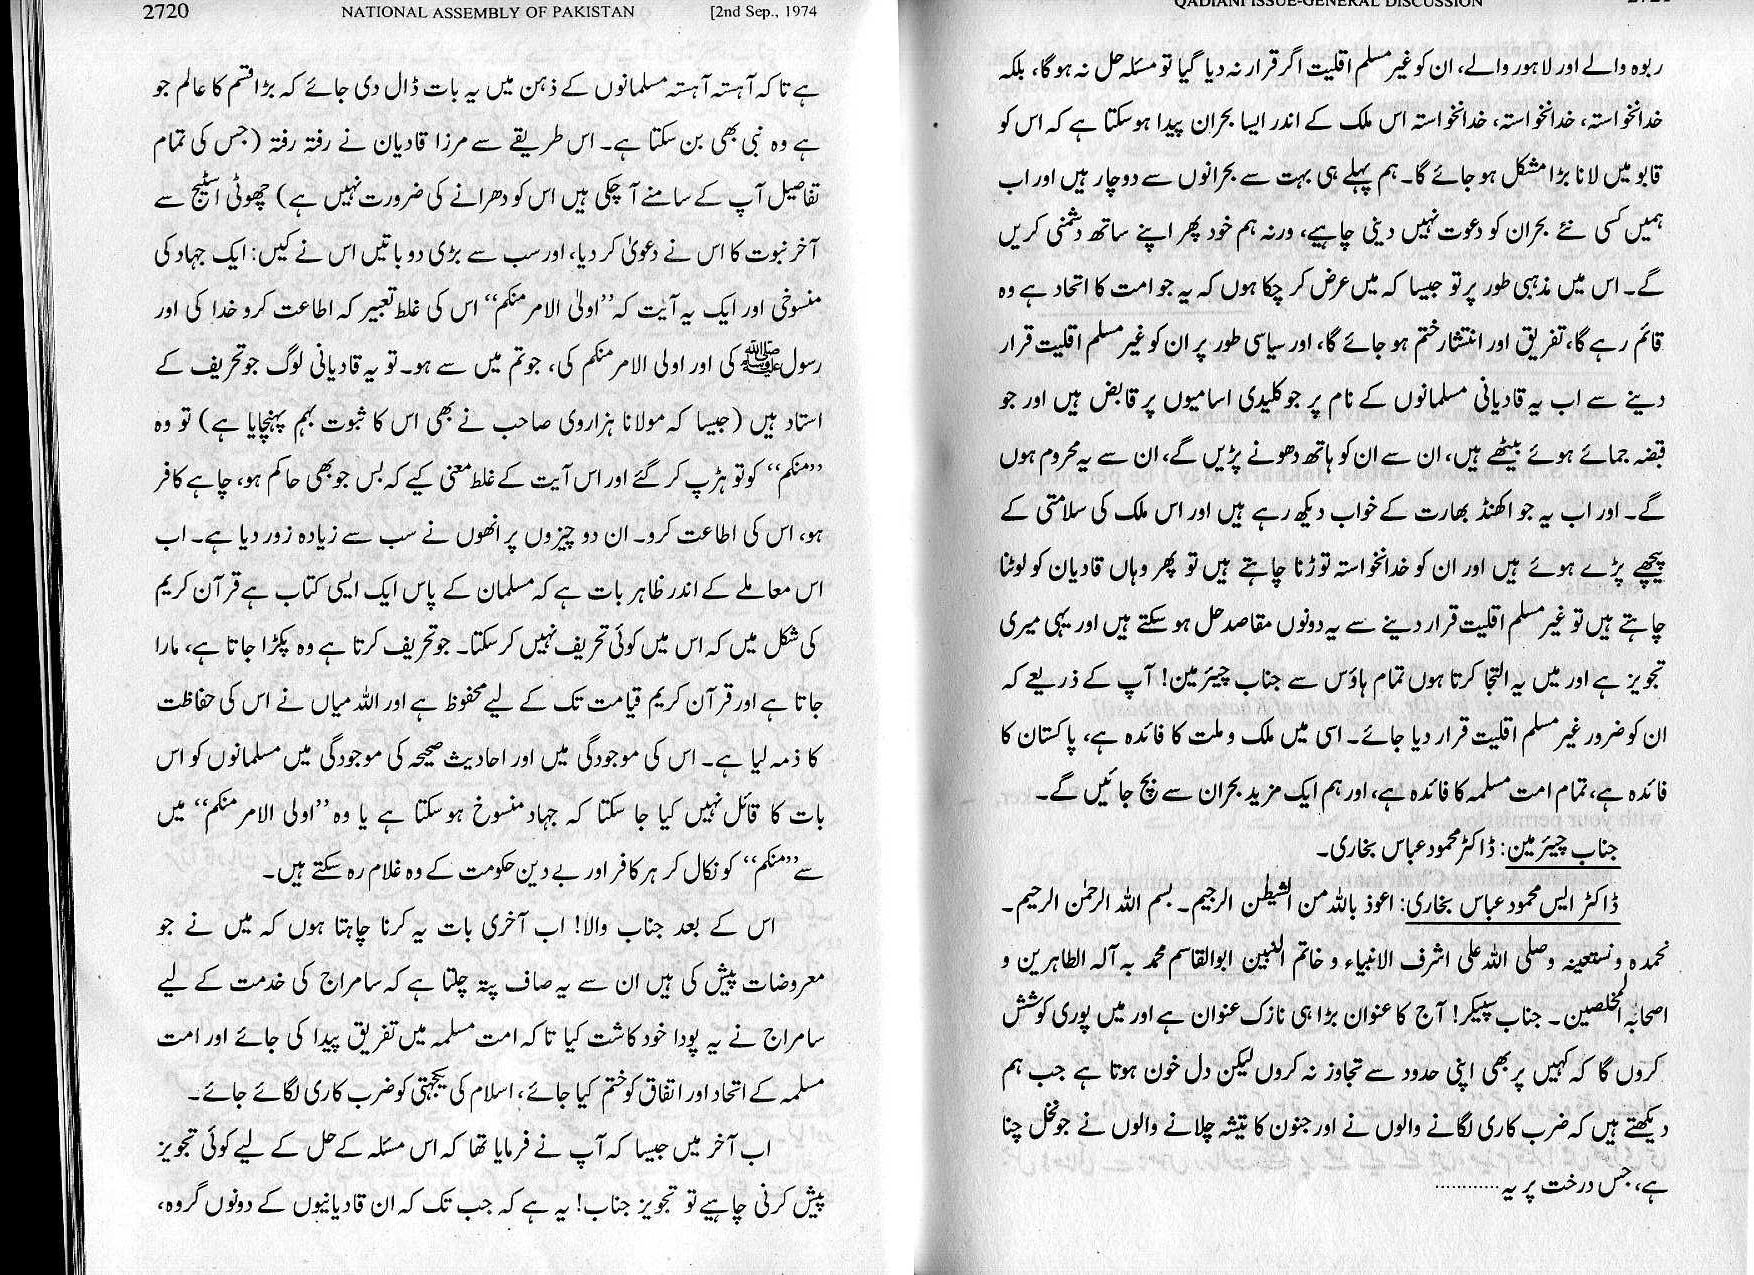 2720 NATIONAL ASSEMBLY OF PAKISTAN [2nd Sep., 1974
ہے تا کہ آہستہ آہستہ مسلمانوں کے ذہن میں یہ بات ڈال دی جائے کہ بڑا قسم کا عالم جو
ہے وہ نبی بھی بن سکتا ہے۔ اس طریقے سے مرزا قادیان نے رفتہ رفتہ (جس کی تمام
تفاصیل آپ کے سامنے آ چکی ہیں اس کو دھرانے کی ضرورت نہیں ہے) چھوٹی اسٹیج سے
آخر نبوت کا اس نے دعویٰ کر دیا، اور سب سے بڑی دو باتیں اس نے کیں: ایک جہاد کی
منسوخی اور ایک یہ آیت کہ ’’اولیٰ الامر منکم‘‘ اس کی غلط تعبیر کہ اطاعت کرو خدا کی اور
رسول ﷺ کی اور اولی الامر منکم کی، جو تم میں سے ہو۔ تو یہ قادیانی لوگ جو تحریف کے
استاد ہیں (جیسا کہ مولانا ہزاروی صاحب نے بھی اس کا ثبوت بہم پہنچایا ہے) تو وہ
’’منکم‘‘ کو تو ہڑپ کر گئے اور اس آیت کے غلط معنی کیے کہ بس جو بھی حاکم ہو، چاہے کافر
ہو، اس کی اطاعت کرو۔ ان دو چیزوں پر انھوں نے سب سے زیادہ زور دیا ہے۔ اب
اس معاملے کے اندر ظاہر بات ہے کہ مسلمان کے پاس ایک ایسی کتاب ہے قرآن کریم
کی شکل میں کہ اس میں کوئی تحریف نہیں کر سکتا۔ جو تحریف کرتا ہے وہ پکڑا جاتا ہے، مارا
جاتا ہے اور قرآن کریم قیامت تک کے لیے محفوظ ہے اور اللہ میاں نے اس کی حفاظت
کا ذمہ لیا ہے۔ اس کی موجودگی میں اور احادیث صحیحہ کی موجودگی میں مسلمانوں کو اس
بات کا قائل نہیں کیا جا سکتا کہ جہاد منسوخ ہو سکتا ہے یا وہ ’’اولی الامر منکم‘‘ میں
سے ’’منکم‘‘ کو نکال کر ہر کافر اور بے دین حکومت کے وہ غلام رہ سکتے ہیں۔
اس کے بعد جناب والا! اب آخری بات یہ کرنا چاہتا ہوں کہ میں نے جو
معروضات پیش کی ہیں ان سے یہ صاف پتہ چلتا ہے کہ سامراج کی خدمت کے لیے
سامراج نے یہ پودا خود کاشت کیا تا کہ امت مسلمہ میں تفریق پیدا کی جائے اور امت
مسلمہ کے اتحاد اور اتفاق کو ختم کیا جائے، اسلام کی یکجہتی کو ضرب کاری لگائے جائے۔
اب آخر میں جیسا کہ آپ نے فرمایا تھا کہ اس مسئلہ کے حل کے لیے کوئی تجویز
پیش کرنی چاہیے تو تجویز جناب! یہ ہے کہ جب تک کہ ان قادیانیوں کے دونوں گروہ،
QADIANI ISSUE-GENERAL DISCUSSION
ربوہ والے اور لاہور والے، ان کو غیر مسلم اقلیت اگر قرار نہ دیا گیا تو مسئلہ حل نہ ہو گا، بلکہ
خدانخواستہ، خدانخواستہ، خدانخواستہ اس ملک کے اندر ایسا بحران پیدا ہو سکتا ہے کہ اس کو
قابو میں لانا بڑا مشکل ہو جائے گا۔ ہم پہلے ہی بہت سے بحرانوں سے دوچار ہیں اور اب
ہمیں کسی نئے بحران کو دعوت نہیں دینی چاہیے، ورنہ ہم خود پھر اپنے ساتھ دشمنی کریں
گے۔ اس میں مذہبی طور پر تو جیسا کہ میں عرض کر چکا ہوں کہ یہ جو امت کا اتحاد ہے وہ
قائم رہے گا، تفریق اور انتشار ختم ہو جائے گا، اور سیاسی طور پر ان کو غیر مسلم اقلیت قرار
دینے سے اب یہ قادیانی مسلمانوں کے نام پر جو کلیدی اسامیوں پر قابض ہیں اور جو
قبضہ جمائے ہوئے بیٹھے ہیں، ان سے ان کو ہاتھ دھونے پڑیں گے، ان سے یہ محروم ہوں
گے۔ اور اب یہ جو اکھنڈ بھارت کے خواب دیکھ رہے ہیں اور اس ملک کی سلامتی کے
پیچھے پڑے ہوئے ہیں اور ان کو خدانخواستہ توڑنا چاہتے ہیں تو پھر وہاں قادیان کو لوٹنا
چاہتے ہیں تو غیر مسلم اقلیت قرار دینے سے یہ دونوں مقاصد حل ہو سکتے ہیں اور یہی میری
تجویز ہے اور میں یہ التجا کرتا ہوں تمام ہاؤس سے جناب چیئرمین! آپ کے ذریعے کہ
ان کو ضرور غیر مسلم اقلیت قرار دیا جائے۔ اسی میں ملک و ملت کا فائدہ ہے، پاکستان کا
فائدہ ہے، تمام امت مسلمہ کا فائدہ ہے، اور ہم ایک مزید بحران سے بچ جائیں گے۔
جناب چیئرمین: ڈاکٹر محمود عباس بخاری۔
ڈاکٹر ایس محمود عباس بخاری: اعوذ باللہ من الشیطن الرجیم۔ بسم اللہ الرحمٰن الرحیم۔
نحمدہ و نستعینہ وصلی اللہ علی اشرف الانبیاء و خاتم النبین ابوالقاسم محمد بہ آلہ الطاہرین و
اصحابہ المخلصین۔ جناب سپیکر! آج کا عنوان بڑا ہی نازک عنوان ہے اور میں پوری کوشش
کروں گا کہ کہیں پر بھی اپنی حدود سے تجاوز نہ کروں لیکن دل خون ہوتا ہے جب ہم
دیکھتے ہیں کہ ضرب کاری لگانے والوں نے اور جنون کا تیشہ چلانے والوں نے جو نخل چنا
ہے، جس درخت پر یہ ............